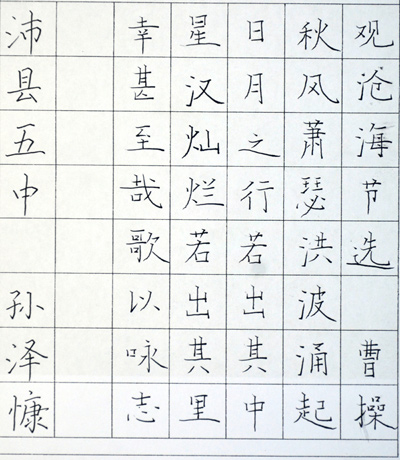 观沧海节选 曹操
秋风萧瑟洪波涌起
日月之行若出其中
星汉灿烂若出其里
幸甚至哉歌以咏志
沛县五中 孙泽慷